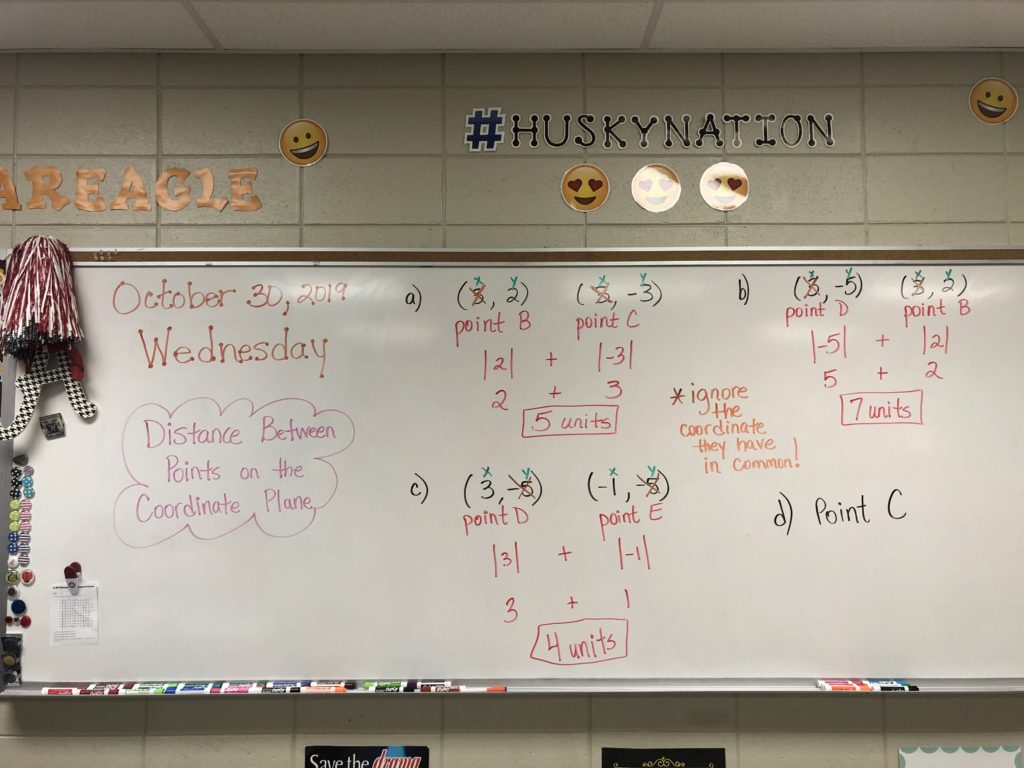 #HUSKYNATION
AREAGLE
October 30, 2019
Wednesday
Distance Between
Points on the
Coordinate Plane
a) (3, 2) (3, -3)
x y x y
point B point C
|2| + |-3|
2 + 3
5 units
b) (3, -5) (3, 2)
x y x y
point D point B
|-5| + |2|
5 + 2
7 units
* ignore
the
coordinate
they have
in common!
c) (3, -5) (-1, -5)
x y x y
point D point E
|3| + |-1|
3 + 1
4 units
d) Point C
Save the drama